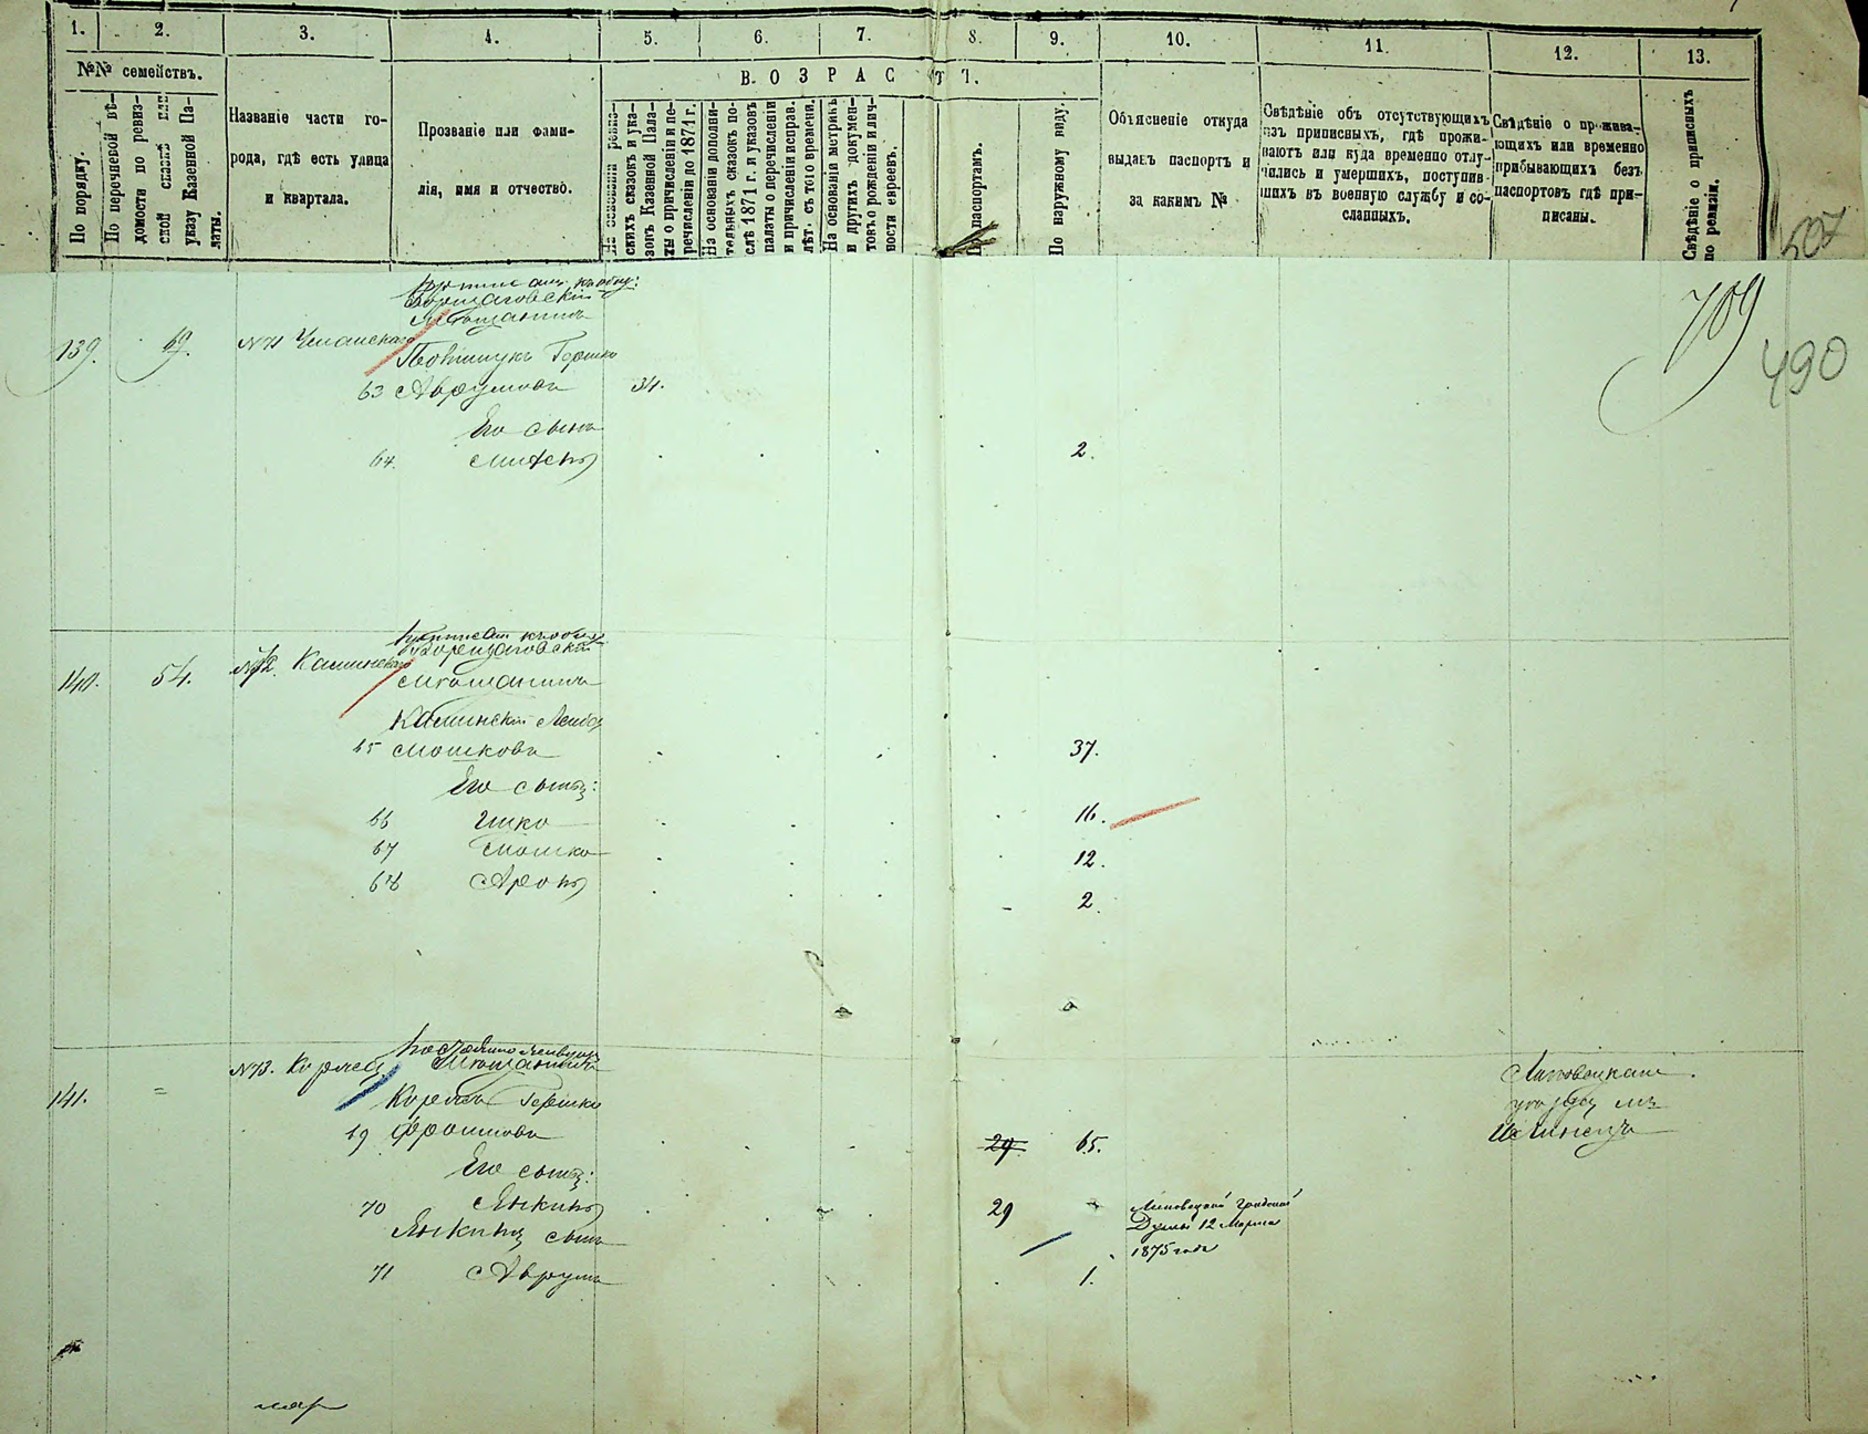 1. 2. 3. 4. 5. 6. 7. 8. 9. 10. 11. 12. 13.
№№ семействъ.
ВОЗРАСТЪ.
По порядку.
По перечневой вѣ-
домости по ревиз-
ской сказкѣ или
указу Казенной Па-
латы.
Названіе части го-
рода, гдѣ есть улица
и квартала.
Прозваніе или фами-
лія, имя и отчество.
На основаніи ревиз-
скихъ сказокъ и ука-
зовъ Казенной Пала-
ты о причисленіи и пе-
речисленіи до 1871 г.
На основаніи дополни-
тельныхъ сказокъ по-
слѣ 1871 г. и указовъ
палаты о перечисленіи
и причисленіи исправ.
лѣт. съ того времени.
На основаніи метрикъ
и другихъ докумен-
товъ о рожденіи и лич-
ности евреевъ.
По паспортамъ.
По наружному виду.
Объясненіе откуда
выданъ паспортъ и
за какимъ №
Свѣдѣніе объ отсутствующихъ
изъ приписныхъ, гдѣ прожи-
ваютъ или куда временно отлу-
чились и умершихъ, поступив-
шихъ въ военную службу и со-
сланныхъ.
Свѣдѣніе о прожива-
ющихъ или временно
прибывающихъ безъ
паспортовъ гдѣ при-
писаны.
Свѣдѣніе о приписныхъ
по ревизіи.
507
709
490
Борщаговскій
Мѣщанинъ
139. 49. №71
Гершко
63 Аврумовъ 34.
Его сынъ
64. 2.
Борщаговскій
140. 54. №72.
Мѣщанинъ
Каминскій Лейба
65 Мошковъ 37.
Его сыны:
66 Ицко 16.
67 Мошко 12.
68 Аронъ 2.
Мѣщанинъ
№73. Корчесъ
141. = Гершко
69 Фроимовъ 29 65.
Его сыны:
70 Янкинъ 29
Янкинъ сынъ
71 Аврумъ 1.
Липовецкой Градской
Думы 12 Марта
1875 года
Липовецкаго
уѣзда м.
Илинецъ